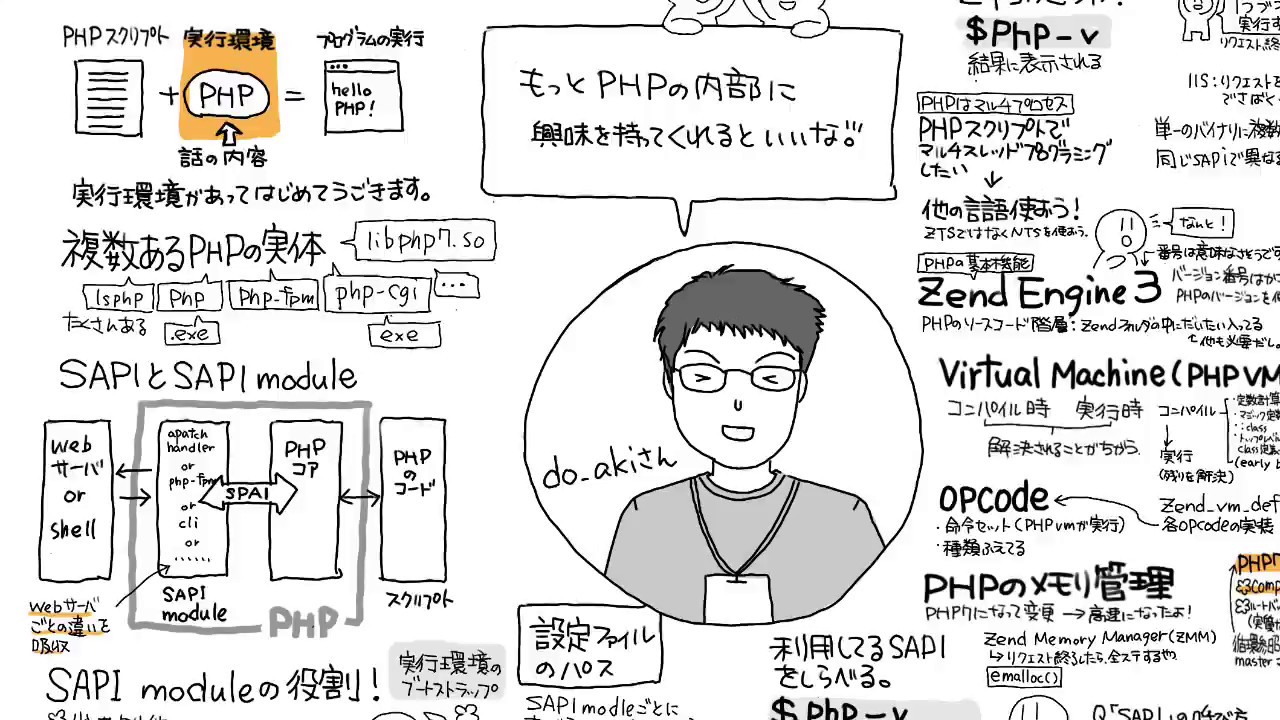 PHPスクリプト
実行環境
プログラムの実行
+
PHP
=
hello
PHP!
話の内容
実行環境があってはじめてうごきます。
複数あるPHPの実体
libphp7.so
lsphp
php
php-fpm
php-cgi
...
たくさんある
.exe
exe
SAPIとSAPI module
web
サーバ
or
shell
apatch
handler
or
php-fpm
or
cli
or
......
SPAI
PHP
コア
PHP
の
コード
SAPI
module
PHP
スクリプト
webサーバ
ごとの違いを
吸収
SAPI moduleの役割!
実行環境の
ブートストラップ
もっとPHPの内部に
興味を持ってくれるといいな!!
do_akiさん
設定ファイル
のパス
SAPI modleごとに
利用してるSAPI
をしらべる。
$ php -v
$ php -v
結果に表示される
PHPはマルチプロセス
PHPスクリプトで
マルチスレッドプログラミング
したい
↓
他の言語使おう!
ZTSではなくNTSを使おう。
なんと!
PHPの基本機能
Zend Engine 3
PHPのソースコード階層:Zendフォルダの中にだいたい入ってる
他も必要だし。
番号は意味なさそうです
バージョン番号は
PHPのバージョンを
Virtual Machine(PHP VM
コンパイル時
実行時
解決されることがちがう。
コンパイル
↓
実行
(残りを解決)
・定数計算
・マジック定数
・::class
・トップレベル
class定義
(early b
OPcode
・命令セット(PHP vmが実行)
・種類ふえてる
Zend_vm_def
各OPcodeの実装
PHPのメモリ管理
PHP7になって変更 → 高速になったよ!
Zend Memory Manager(ZMM)
↳リクエスト終了したら、全ステするや
emalloc()
リクエスト終
IIS:リクエストを
でさばく
単一のバイナリに複数
同じSAPIで異なる
PHP
master